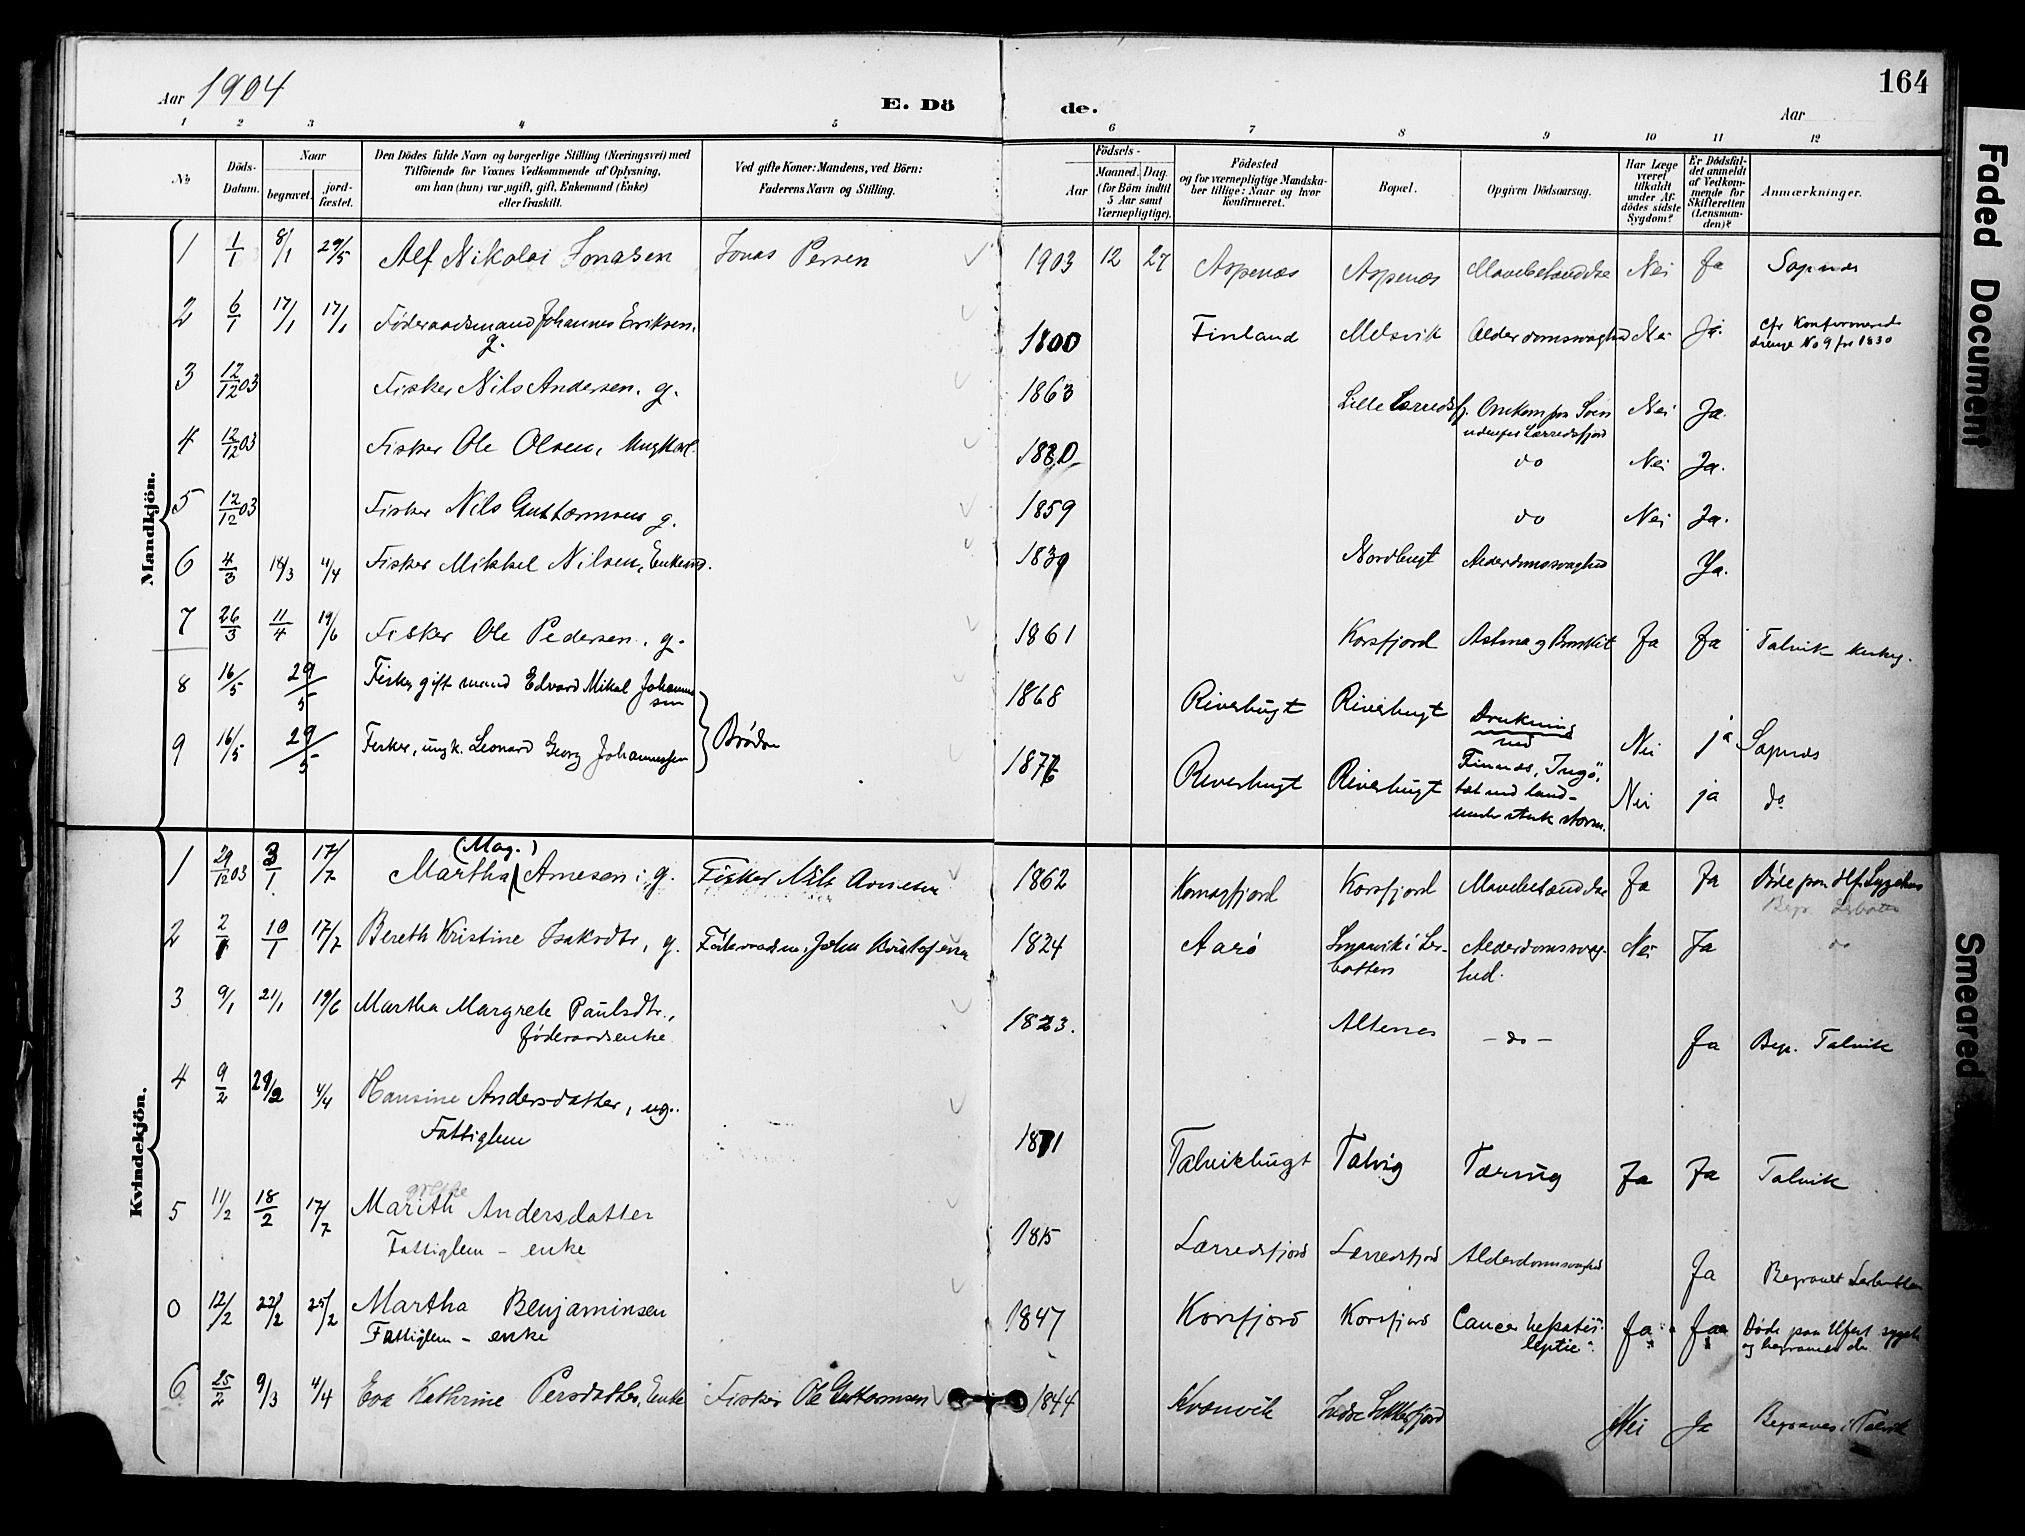 164
Aar 1904
E. Dö de.
Aar
1 2 3 4 5 6 7 8 9 10 11 12
No
Döds-Datum.
Naar begravet. jordfæstet.
Den Dödes fulde Navn og borgerlige Stilling (Næringsvei) med
Tilföiende for Voxnes Vedkommende af Oplysning,
om han (hun) var ugift, gift, Enkemand (Enke)
eller fraskilt.
Ved gifte Koner: Mandens, ved Börn:
Faderens Navn og Stilling.
Födsels-
Aar
Maaned. Dag.
(for Börn indtil
5 Aar samt
Værnepligtige).
Födested
og for værnepligtige Mandskaber tillige: Naar og hvor
Konfirmeret.
Bopæl.
Opgiven Dödsaarsag.
Har Læge
været
tilkaldt
under Afdödes sidste
Sygdom?
Er Dödsfaldet anmeldt
af Vedkommende for
Skifteretten
(Lensmanden)?
Anmærkninger.
Mandkjön.
1 1/1 8/1 29/5 Alf Nikolai Jonasen Jonas Persen 1903 12 27 Aspenæs Aspenæs Mavebetændelse Nei Ja Sopnæs
2 6/1 17/1 17/1 Føderaadsmand Johannes Eriksen, g. 1800 Finland Melsvik Alderdomssvaghed Nei Ja. cfr Konfirmerede
drenge No 9 for 1830
3 12/12 03 Fisker Nils Andersen, g. 1863 Lille Lerredsfj. Omkom paa Søen Nei Ja.
udenfor Lerredsfjord
4 12/12 03 Fisker Ole Olsen, Ungkarl. 1880 do Nei Ja.
5 12/12 03 Fisker Nils Guttormsen g. 1859 do Nei Ja.
6 4/3 18/3 4/4 Fisker Mikkel Nilsen, Enkemd. 1839 Nordbugt Alderdomssvaghed Ja.
7 26/3 11/4 19/6 Fisker Ole Pedersen, g. 1861 Korsfjord Astma og Bronkit Ja Ja Talvik
8 16/5 29/5 Fisker, gift mand Edvard Mikal Johannessen 1868 Riverbugt Riverbugt Drukning Nei ja Sopnæs
9 16/5 29/5 Fisker, ungk. Leonard Georg Johannessen Brødre 1876 Riverbugt Riverbugt ved Finnes, Ingö,
tæt ved land - Nei ja do
under sterk storm.
Kvindekjön.
(Mag.)
1 29/12 03 3/1 17/7 Martha Arnesen, g. Fisker Nils Arnesen 1862 Komagfjord Korsfjord Mavebetændelse Ja Ja Døde paa Hf. Sygehus
2 2/1 10/1 17/7 Bereth Kristine Isaksdtr, g. Føderaadsm. John Kristofersen 1824 Aarö i Lerbotten Alderdomssvaghed. Nei Ja do
3 9/1 21/1 19/6 Martha Margrete Paulsdtr., 1823. Altenes - do - Ja Beg. Talvik
føderaadsenke
4 9/2 29/2 4/4 Hansine Andersdatter, ug. 1871 Talvikbugt Talvig Tæring Ja Ja Talvik
Fattiglem
5 11/2 18/2 17/7 Marith Andersdatter 1815 Lerredsfjord Lerredsfjord Alderdomssvaghed Ja Begravet Lerbotten
Fattiglem - enke
0 12/2 22/2 25/2 Martha Benjaminsen 1847 Korsfjord Korsfjord Cancer hepatis. Ja Ja Døde paa Hfest sygeh
Fattiglem - enke
6 25/2 9/3 4/4 Eva Kathrine Persdatter, Enke Fisker Ole Guttormsen 1844 Kvænvik Indre Nei Ja Begraves i Talvik
Faded Document
Smeared